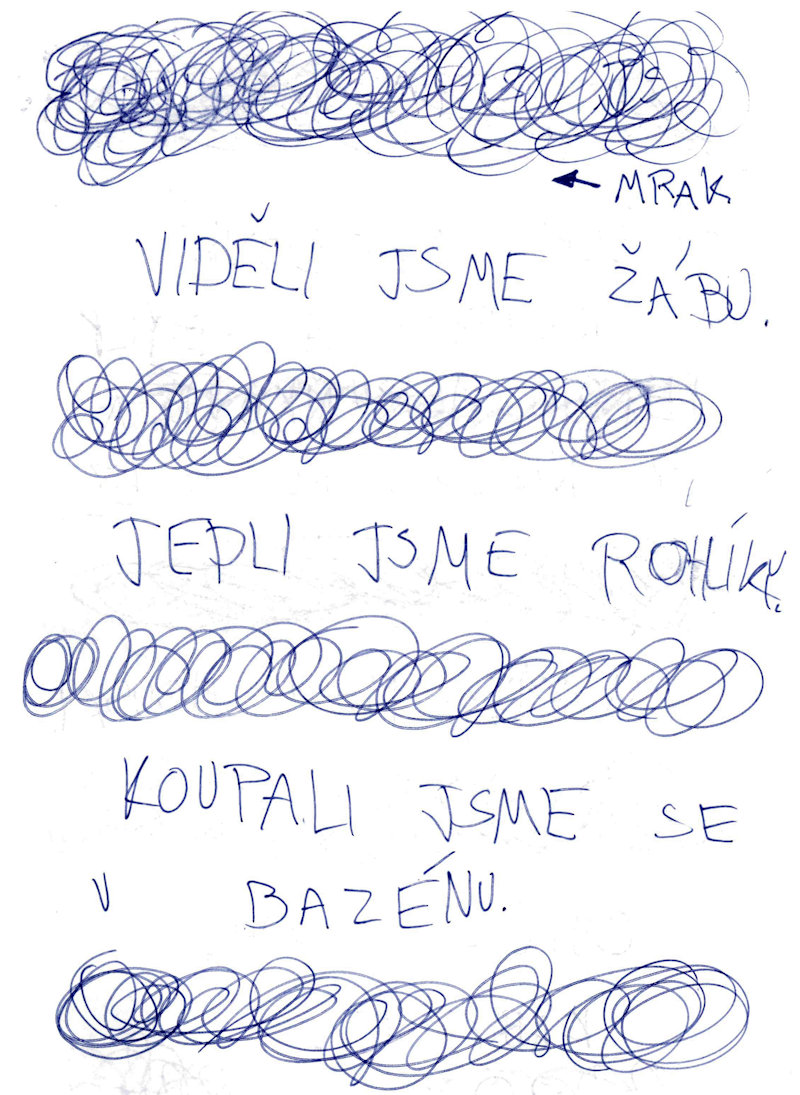 ← MRAK
VIDĚLI JSME ŽÁBU.
JEDLI JSME ROHLÍKY.
KOUPALI JSME SE
V BAZÉNU.